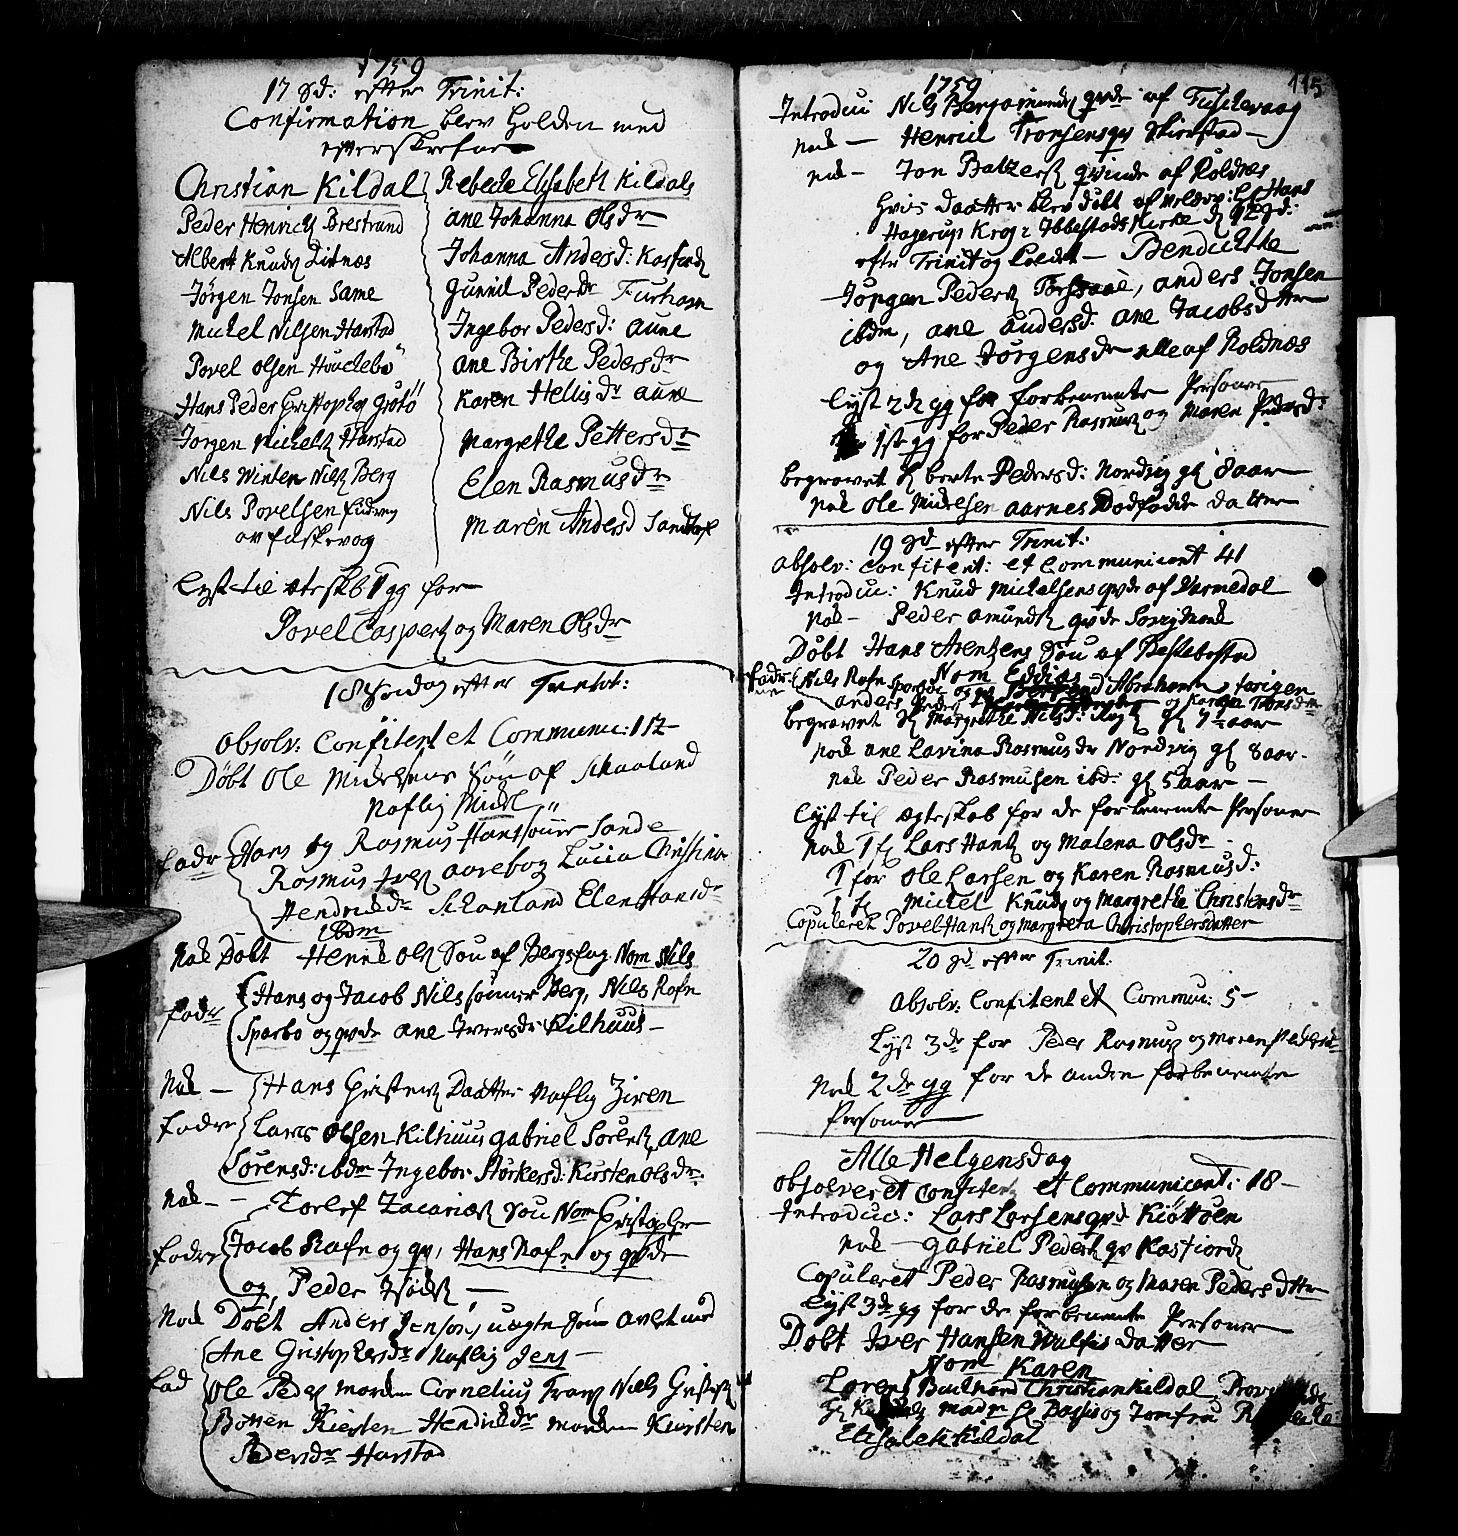 1759
17 Sd: efter Trinit:
Confirmation blev holden med
efterskrefne
Christian Kildal
Peder Henrichs Brestrand
Albert Knuds Litnæs
Jørgen Jonsen Same
Michel Nilsen Harstad
Povel Olsen Houclebø
Hans Peder Christophers Grøtø
Jørgen Michels Harstad
Nils Winter Nils Berg
Nils Povelsen
af fuskevog
Rebecke Elisabeth Kildals
Ane Johanna Olsdr
Johanna Andersd: Kasfiord
Gunnil Pedersdr
Ingebor Pedersd: Aune
Ane Birthe Pedersdr
Karen Hellisdr Aune
Margrethe Pettersdr
Elen Rasmusdr
Maren Andersd Sandtorf
Lyst til ægteskb 1 gg for
Povel Caspers og Maren Olsdr
18 Søndag efter Trinit:
Absolv: Confitent et Communic: 112
Døbt Ole Michelsens Søn af Schaaland
Naflig Michel
Fadr Hans og Rasmus Hanssønner Sande
Rasmus Aarebog Lucia Christina
Hendrichsdr Schanland Elen Hansdr
Ibdm
Nok Døbt Henric Ols Søn af Bergsleg Nom Nils
Fadr Hans og Jacob Nilssønner Berg, Nils Rafn
Sparbo og qvde Ane Iversdr Kilhuus
Nok — Hans Christens Daatter Naflig Ziren
Fadre Lars Olsen Kilhuus Gabriel Sørens, Ane
Sørensd: ibdm Ingebor Størkersd: Kirsten Olsdr
Nok — Torlef Zacarias Søn Nom Christopher
Fadre Jacob Rafn og qv, Hans Rafn og qvde
og, Peder
Nok Døbt Anders Jensøns uægte Søn avlet med
Ane Christophersdr Naflig Jens
Fad Ole Peders Morten Cornelius Frans Niels Christens
Kiersten Hendrichsdr Kirsten
Pedersdr Harstad
115
1759
Introduc: Nils Benjamins qvde af Fuskevaag
Nok — Henric Tronsens qv Skierstad
Nok — Jon Balzers qvinde af Roldnæs
hvis Daatter blev døbt af Velærv: Hr Hans
Hagerup Krog i Ibbestads Kirke d: 12 Sd:
eftr Trinit og kaldt — Bendichte
Jørgen Peders, Anders Jonsen
ibdm, Ane Andersd: Ane Jacobsdttr
og Ane Jørgensdr alle af Roldnæs
Lyst 2de gg for forbenemte Personer
1ste gg for Peder Rasmus og Maren Pedersdr
Begravet Berte Pedersd: Nordvig gl 8 aar
Nok Ole Michelsen Aarnes Dødfødde datter
19 Sd efter Trinit:
Absolv: Confitent: et Communicent 41
Introduc: Knud Michelsens qvde af Varmedal
Nok — Peder Amunds qvde Sørvigmark
Døbt Hans Arentzens Søn af Beslebostad
Nom Eddias
Fadrne Nils Rafn Sparbo og
Anders og Karen Tronsdr
Begravet Margrethe Nilsd: gl 7 aar
Nok Ane Lavina Rasmusdr Nordvig gl 8 aar
Nok Peder Rasmusen ibd: gl 5 aar —
Lyst til ægteskab for de forbenemte Personer
Nok 1 f Lars Hans og Malena Olsdr
1 for Ole Larsen og Karen Rasmusd:
1 f Michel Knuds og Margrethe Christensdr
Copuleret Povel Hans og Margreta Christophersdatter
20 Sd efter Trinit:
Absolv: Confitent et Commun: 5 —
Lyst 3de for Peder Rasmus og Maren Pedersdr
Nok 2de gg for de andre forbenemte
Personer
Alle Helgensdag
Absolveret Confitent et Communicent: 18 —
Introduc: Lars Larsens qvd Kiøttøen
Nok — Gabriel Peders qv Kasfiord
Copuleret Peder Rasmusen og Maren Pedersdttr
Lyst 3de gg for de forbenemte Personer
Døbt Iver Hansen Datter
Nom Karen
Lorens Christian Kildal
og Jomfru
Elisabeth Kildal